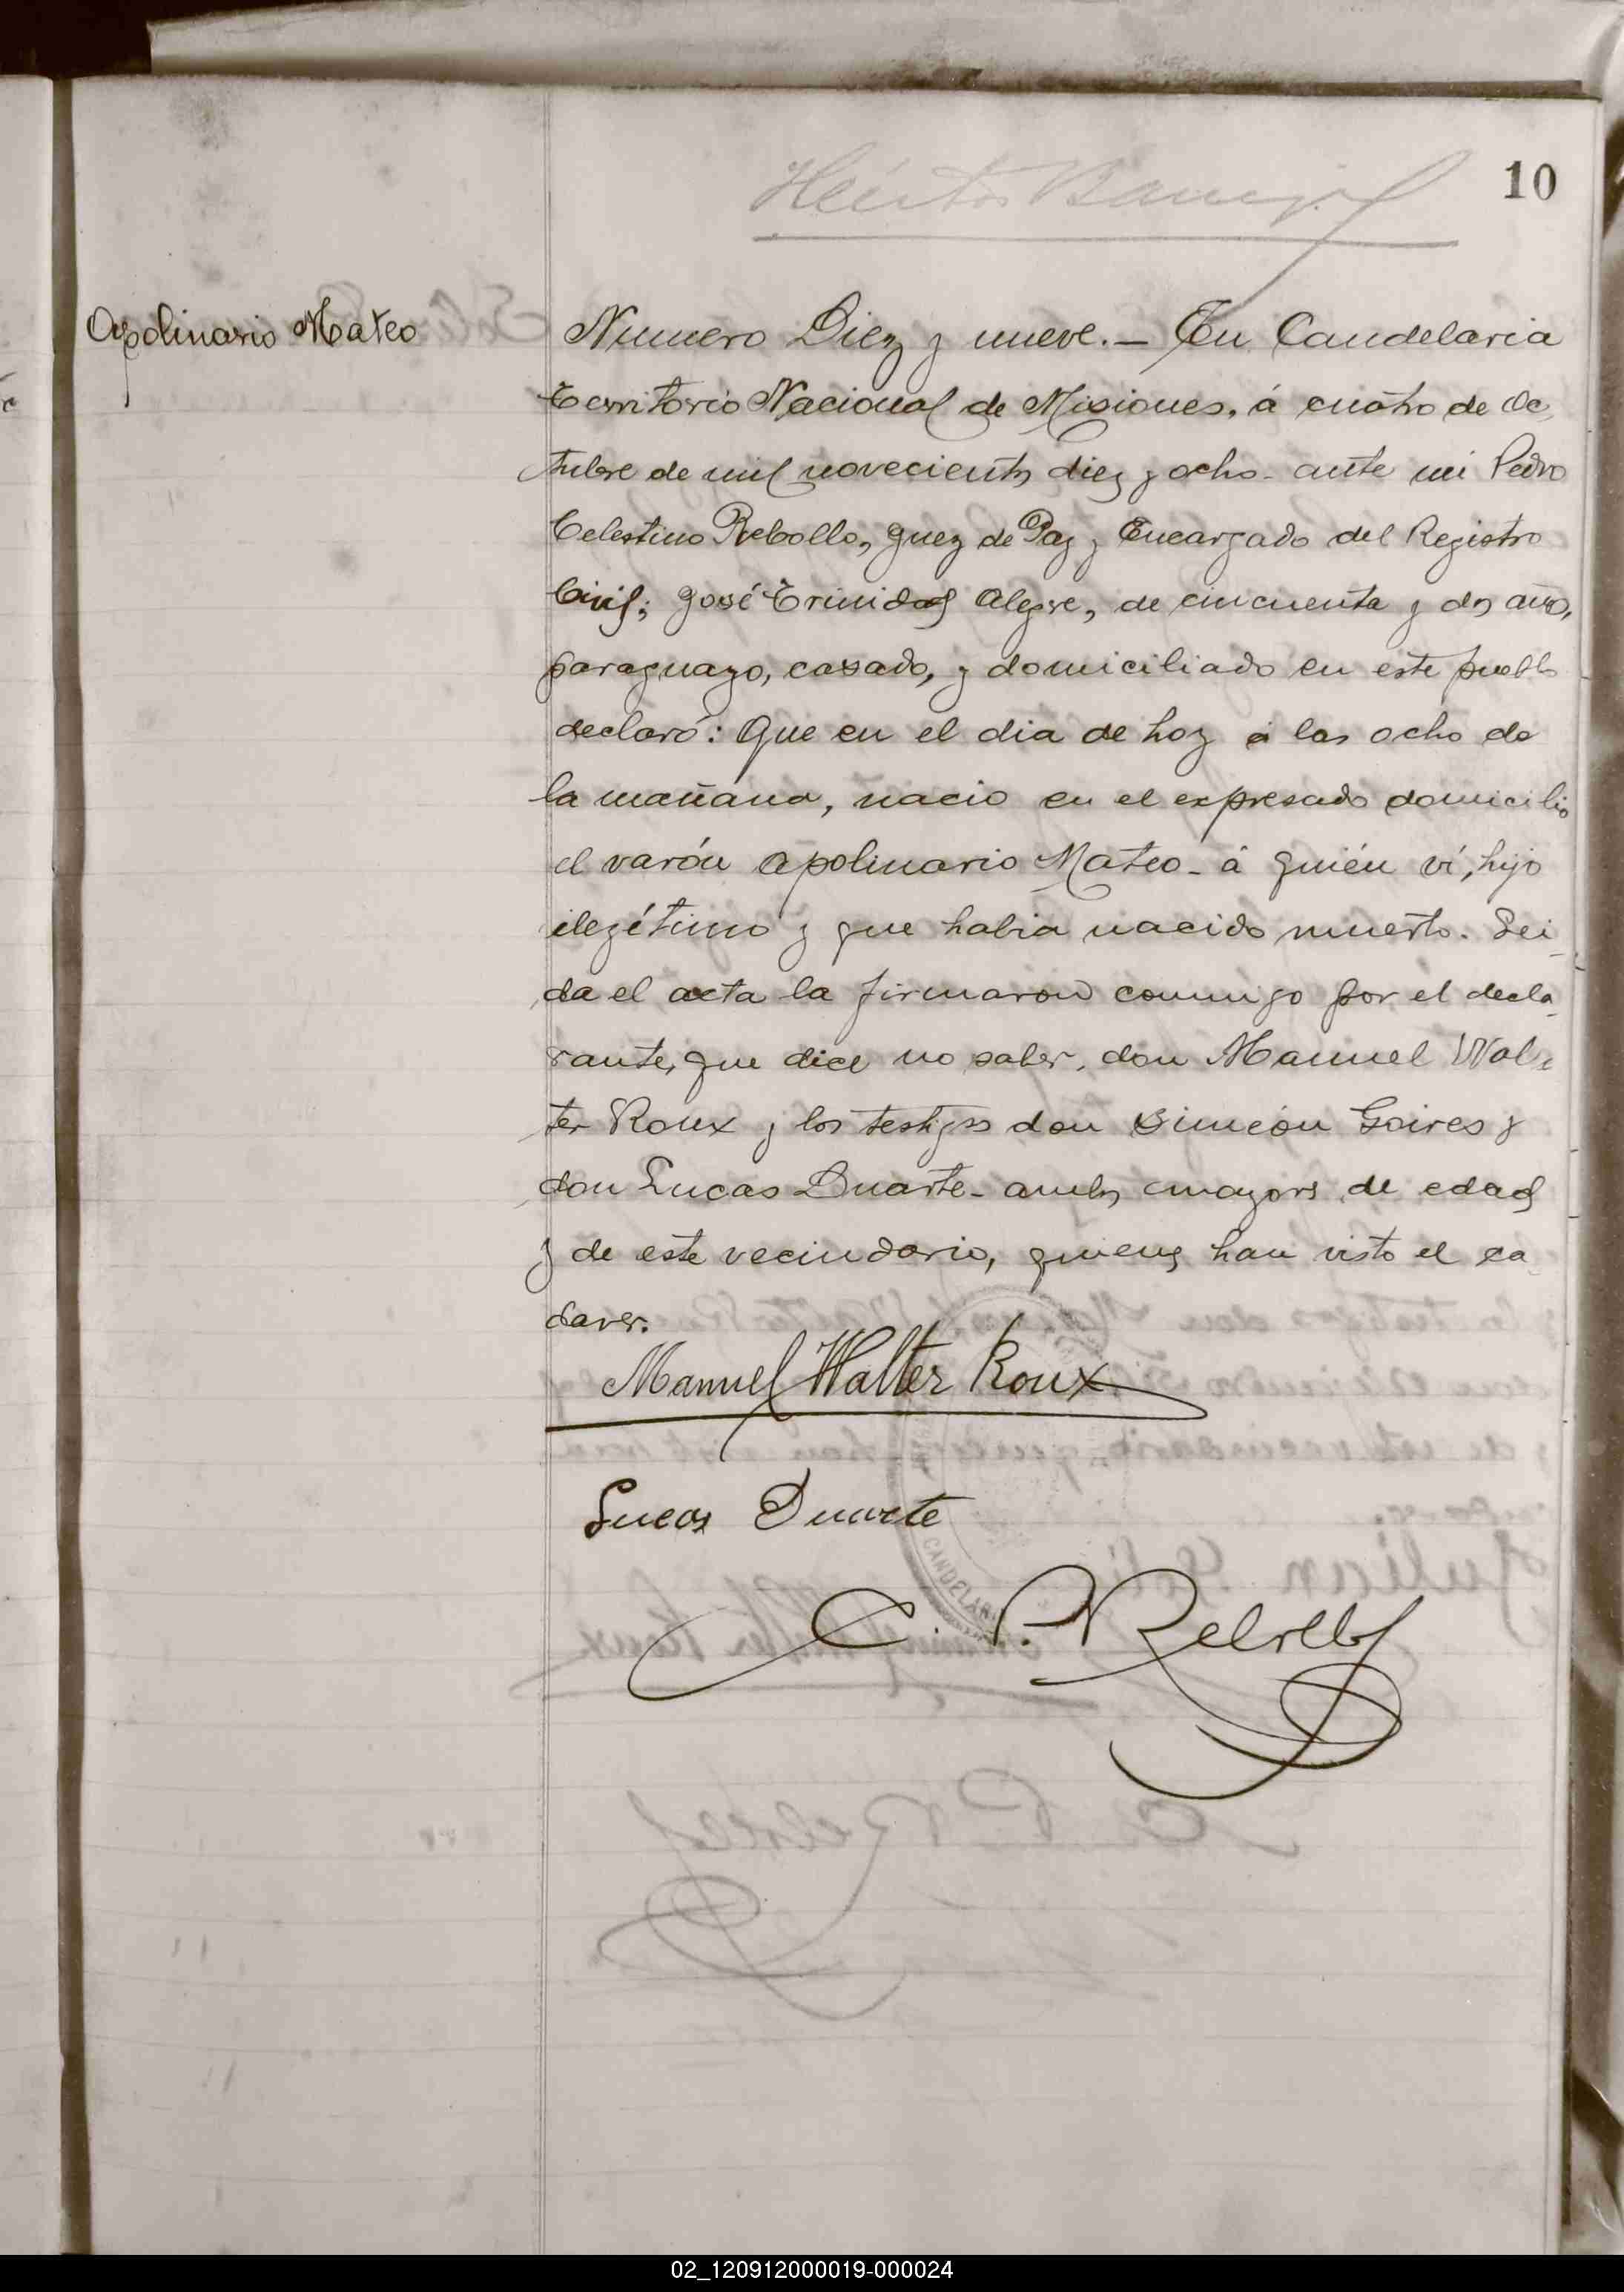 10
Apolinario Mateo
Numero Diez y nueve. — En Candelaria
Territorio Nacional de Misiones, á cuatro de Oc
tubre de mil novecientos diez y ocho - ante mi Pedro
Celestino Rebollo, Juez de Paz y Encargado del Registro
Civil; José Trinidad Alegre, de cincuenta y dos años,
paraguayo, casado, y domiciliado en este pueblo
declaró: Que en el dia de hoy á las ocho de
la mañana, nació en el expresado domicilio
el varón Apolinario Mateo - á quién ví, hijo
ilegítimo y que habia nacido muerto. Lei-
da el acta la firmaron conmigo por el decla-
rante, que dice no saber, don Manuel Wal-
ter Roux y los testigos don Simeón Goires y
don Lucas Duarte - ambos mayores de edad
y de este vecindario, quienes han visto el ca-
daver.
Manuel Walter Roux
Lucas Duarte
C. P. Rebollo
CANDELARIA
02_120912000019-000024